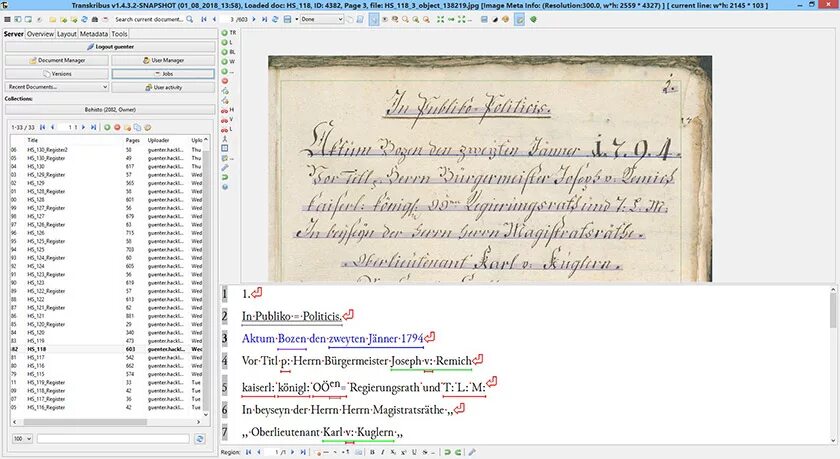 Transkribus v1.4.3.2-SNAPSHOT (01_08_2018_13:58), Loaded doc: HS_118, ID: 4382, Page 3, file: HS_118_3_object_138219.jpg [Image Meta Info: (Resolution:300.0, w*h: 2559 * 4327) ] [ current line: w*h: 2145 * 103 ]
Search current document... 3 /603 Done
Server Overview Layout Metadata Tools
Logout guenter
Document Manager User Manager
Versions Jobs
Recent Documents... User activity
Collections:
Bohisto (2082, Owner)
1-33 / 33 1 /1
Title Pages Uploader Uplo
06 HS_130_Register2 58 guenter.hackl... Thu
05 HS_130_Register 49 guenter.hackl... Thu
04 HS_130 617 guenter.hackl... Thu
03 HS_129_Register 57 guenter.hackl... Wed
02 HS_129 565 guenter.hackl... Wed
01 HS_128_Register 58 guenter.hackl... Wed
00 HS_128 601 guenter.hackl... Wed
99 HS_127_Register 56 guenter.hackl... Wed
98 HS_127 696 guenter.hackl... Wed
97 HS_126_Register 63 guenter.hackl... Wed
96 HS_126 715 guenter.hackl... Wed
95 HS_125_Register 58 guenter.hackl... Wed
94 HS_125 703 guenter.hackl... Wed
93 HS_124_Register 54 guenter.hackl... Wed
92 HS_124 605 guenter.hackl... Wed
91 HS_123_Register 57 guenter.hackl... Wed
90 HS_123 619 guenter.hackl... Wed
89 HS_122_Register 57 guenter.hackl... Wed
88 HS_122 679 guenter.hackl... Wed
87 HS_121_Register 62 guenter.hackl... Wed
86 HS_121 881 guenter.hackl... Wed
85 HS_120_Register 56 guenter.hackl... Wed
84 HS_120 662 guenter.hackl... Wed
83 HS_119 473 guenter.hackl... Wed
82 HS_118 603 guenter.hackl... Wed
81 HS_117 542 guenter.hackl... Wed
80 HS_116 662 guenter.hackl... Wed
79 HS_115 574 guenter.hackl... Wed
11 HS_119_Register 33 guenter.hackl... Tue
10 HS_118_Register 42 guenter.hackl... Tue
09 HS_117_Register 36 guenter.hackl... Tue
05 HS_116_Register 42 guenter.hackl... Tue
100
TR
L
BL
W
H
V
L
In Publiko = Politicis.
Aktum Bozen den zweyten Jänner 1.7.9.4.
Vor Titl p: Herrn Bürgermeister Joseph v: Remich
kaiserl: königl: Regierungsrath und T: L: M:
In beyseyn der Herrn Herrn Magistratsräthe
Oberlieutenant Karl v: Kuglern
1 1.
2 In·Publiko·=·Politicis.
3 Aktum·Bozen·den·zweyten·Jänner·1794
4 Vor·Titl·p:·Herrn·Bürgermeister·Joseph·v:·Remich
5 kaiserl:·königl:·OÖen=·Regierungsrath·und·T:·L:·M:
6 In·beyseyn·der·Herrn·Herrn·Magistratsräthe·„
7 „·Oberlieutenant·Karl·v:·Kuglern·„
Region: 1 /1 B I